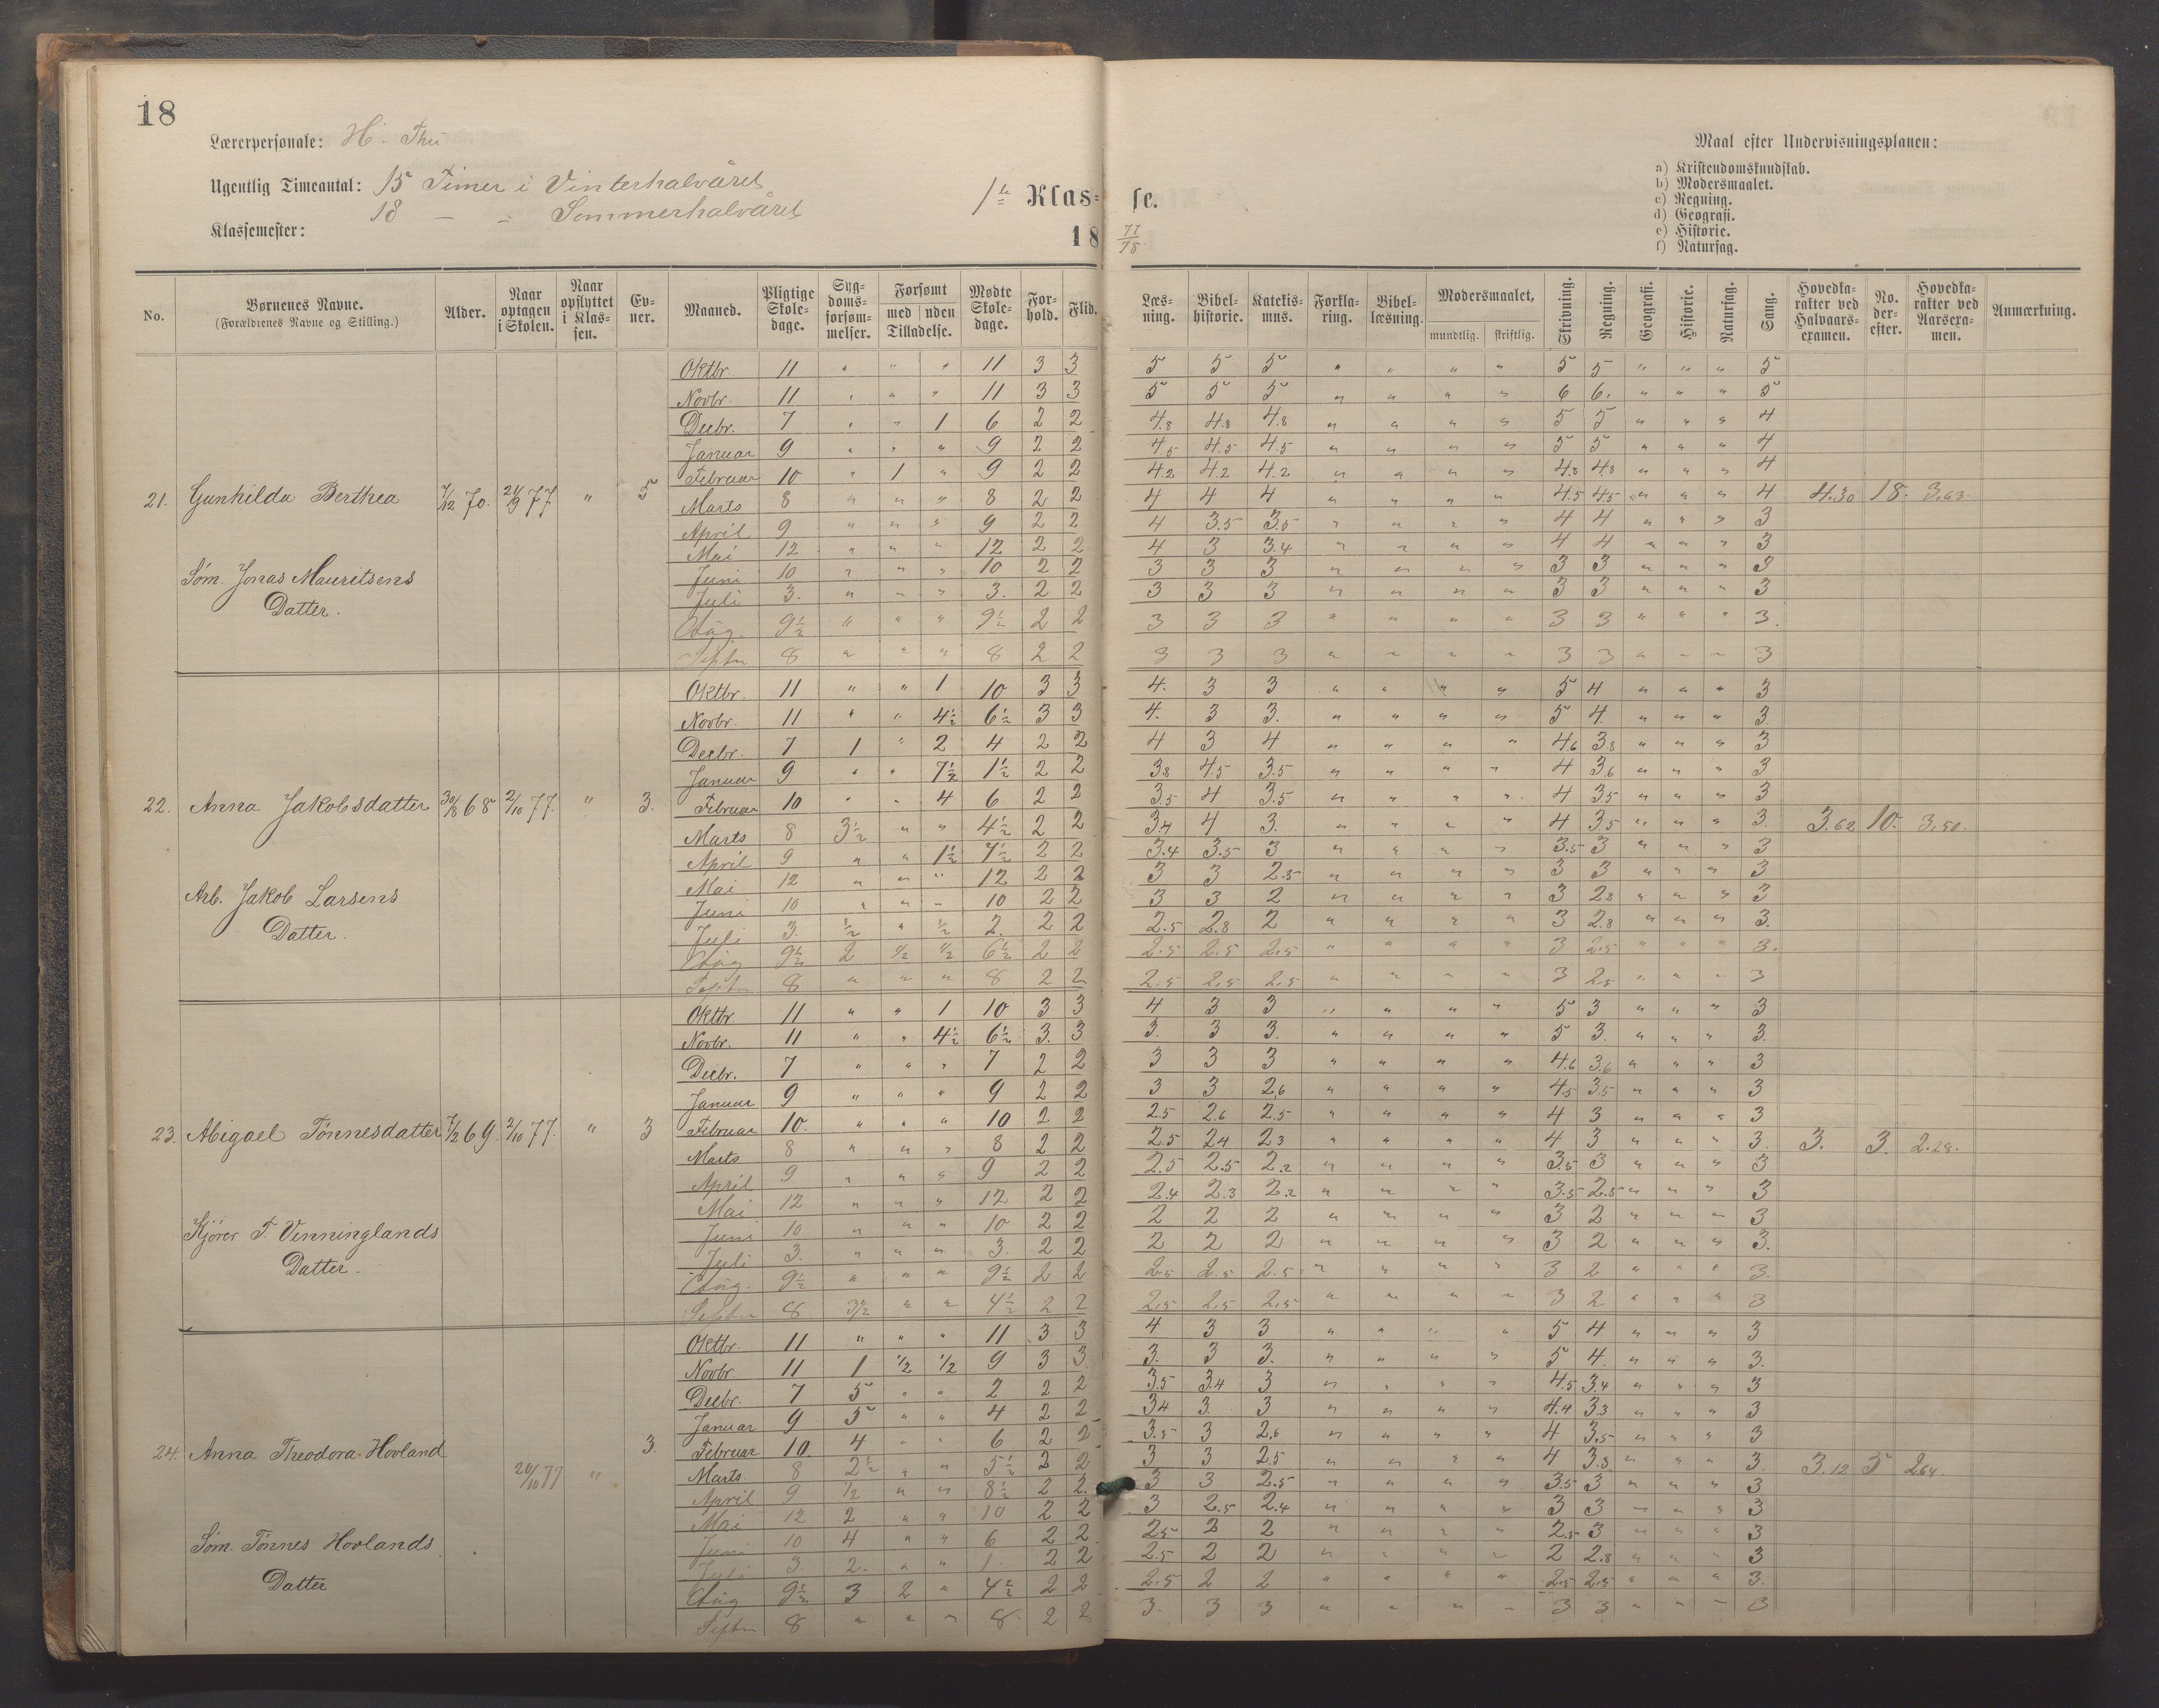 18
Lærerpersonale: H. Thu
Ugentlig Timeantal: 15 Timer i Vinterhalvåret
18 — " Sommerhalvåret
Klassemester:
1ste Klas=
se.
18
77/78.
Maal efter Undervisningsplanen:
a) Kristendomskundskab.
b) Modersmaalet.
c) Regning.
d) Geografi.
e) Historie.
f) Naturfag.
No. Børnenes Navne. (Forældrenes Navne og Stilling.) Alder. Naar optagen i Skolen. Naar opflyttet i Klassen. Evner. Maaned. Pligtige Skoledage. Sygdomsforsømmelser. Forsømt med uden Tilladelse. Mødte Skoledage. Forhold. Flid. Læsning. Bibelhistorie. Katekismus. Forklaring. Bibellæsning. Modersmaalet, mundtlig. skriftlig. Skrivning. Regning. Geografi. Historie. Naturfag. Sang. Hovedkarakter ved Halvaarsexamen. No. derefter. Hovedkarakter ved Aarsexamen. Anmærkning.
Oktbr. 11 " " " 11 3 3 5 5 5 " " " " 5 5 " " " 5
Novbr. 11 " " " 11 3 3 5 5 5 " " " " 6 6. " " " 5
Decbr. 7 " " 1 6 2 2 4.8 4.8 4.8 " " " " 5 5 " " " 4
Januar 9 " " " 9 2 2 4.5 4.5 4.5 " " " " 5 5 " " " 4
Februar 10 " 1 " 9 2 2 4.2 4.2 4.2 " " " " 4.8 4.8 " " " 4
21. Gunhilda Berthea 7/12 70. 21/9 77. " 5 Marts 8 " " " 8 2 2 4 4 4 " " " " 4.5 4.5 " " " 4 4.30 18. 3.63.
April 9 " " " 9 2 2 4 3.5 3.5 " " " " 4 4 " " " 3
Mai 12 " " " 12 2 2 4 3 3.4 " " " " 4 4 " " " 3
Søm. Jonas Mauritsens Juni 10 " " " 10 2 2 3 3 3 " " " " 3 3 " " " 3
Datter. Juli 3. " " " 3. 2 2 3 3 3 " " " " 3 3 " " " 3
Aug. 9½ " " " 9½ 2 2 3 3 3 " " " " 3 3 " " " 3.
Septbr 8 " " " 8 2 2 3 3 3 " " " " 3 3 " " " 3
Oktbr. 11 " " 1 10 3 3 4. 3 3 " " " " 5 4 " " " 3
Novbr. 11 " " 4½ 6½ 3 3 4. 3 3. " " " " 5 4. " " " 3.
Decbr. 7 1 " 2 4 2 2 4 3 4 " " " " 4.6 3.8 " " " 3
Januar 9 " " 7½ 1½ 2 2 3.8 4.5 3.5 " " " " 4 3.6 " " " 3
22. Anna Jakobsdatter 30/8 68 2/10 77. " 3. Februar 10 " " 4 6 2 2 3.5 4 3.5 " " " " 4 3.5 " " " 3
Marts 8 3½ " " 4½ 2 2 3.4 4 3. " " " " 4 3.5 " " " 3 3.62 10. 3.50.
April 9 " " 1½ 7½ 2 2 3.4 3.5 3 " " " " 3.5 3 " " " 3
Mai 12 " " " 12 2 2 3 3 2.5 " " " " 3 3 " " " 3
Arb. Jakob Larsens Juni 10 " " " 10 2 2 3 3 2 " " " " 3 2.8 " " " 3
Datter. Juli 3. ½ " ½ 2. 2 2 2.5 2.8 2 " " " " 3 2.8 " " " 3.
Aug 9½ 2 ½ ½ 6½ 2 2 2.5 2.5 2.5 " " " " 3 2.5 " " " 3.
Septbr 8 " " " 8 2 2 2.5 2.5 2.5 " " " " 3 2.5 " " " 3
Oktbr. 11 " " 1 10 3 3 4 3 3 " " " " 5 3 " " " 3
Novbr. 11 " " 4½ 6½ 3. 3 3. 3 3. " " " " 5 3. " " " 3.
Decbr. 7 " " " 7 2 2 3 3 3 " " " " 4.6 3.6 " " " 3
Januar 9 " " " 9 2 2 3 3 2.6 " " " " 4.5 3.5 " " " 3
23. Abigael Tønnesdatter 7/2 69. 2/10 77. " 3 Februar 10. " " " 10 2 2 2.5 2.6 2.5 " " " " 4 3 " " " 3
Marts 8 " " " 8 2 2 2.5 2.4 2.3 " " " " 4 3 " " " 3. 3. 3. 2.28.
April 9 " " " 9 2 2 2.5 2.5 2.2 " " " " 3.5 3 " " " 3
Mai 12 " " " 12 2 2 2.4 2.3 2.2 " " " " 3.5 2.5 " " " 3
Kjører T. Venninglands Juni 10 " " " 10 2 2 2 2 2 " " " " 3 2 " " " 3
Datter. Juli 3. " " " 3. 2 2 2 2 2 " " " " 3 2 " " " 3.
Aug. 9½ " " " 9½ 2 2 2.5 2.5 2.5 " " " " 3 2 " " " 3.
Septbr 8 3½ " " 4½ 2 2 2.5 2.5 2.5 " " " " 3 2 " " " 3
Oktbr. 11 " " " 11 3 3 4 3 3 " " " " 5 4 " " " 3
Novbr 11 1 1/2 1/2 9 3 3. 3. 3 3. " " " " 5 4. " " " 3.
Decbr. 7 5 " " 2 2 2 3.5 3.4 3 " " " " 4.5 3.4 " " " 3
Januar 9 5 " " 4 2 2 3.4 3. 3 " " " " 4.4 3.3 " " " 3
24. Anna Theodora Hovland 26/10 77 " 3. Februar 10. 4 " " 6 2 2 3.5 3 2.6 " " " " 4 3.5 " " " 3
Marts. 8 2½ " " 5½ 2 2 3 3 2.5 " " " " 4 3.3 " " " 3. 3.12 5 2.64.
April 9 1/2 " " 8½ 2 2. 3 3 2.5 " " " " 3.5 3 " " " 3
Mai 12 2 " " 10 2 2 3 2.5 2.4 " " " " 3 3 " " " 3
Søm. Tønnes Hovlands Juni 10 4 " " 6 2 2 2.5 2 2 " " " " 2.5 3 " " " 3
Datter Juli 3. 2. " " 1. 2 2 2.5 2 2 " " " " 2 2.8 " " " 3
Aug 9½ 3 2 " 4½ 2 2 2.5 2 2 " " " " 2.5 2.5 " " " 3.
Septbr 8 " " " 8. 2 2 3. 3 3 " " " " 3 3 " " " 3